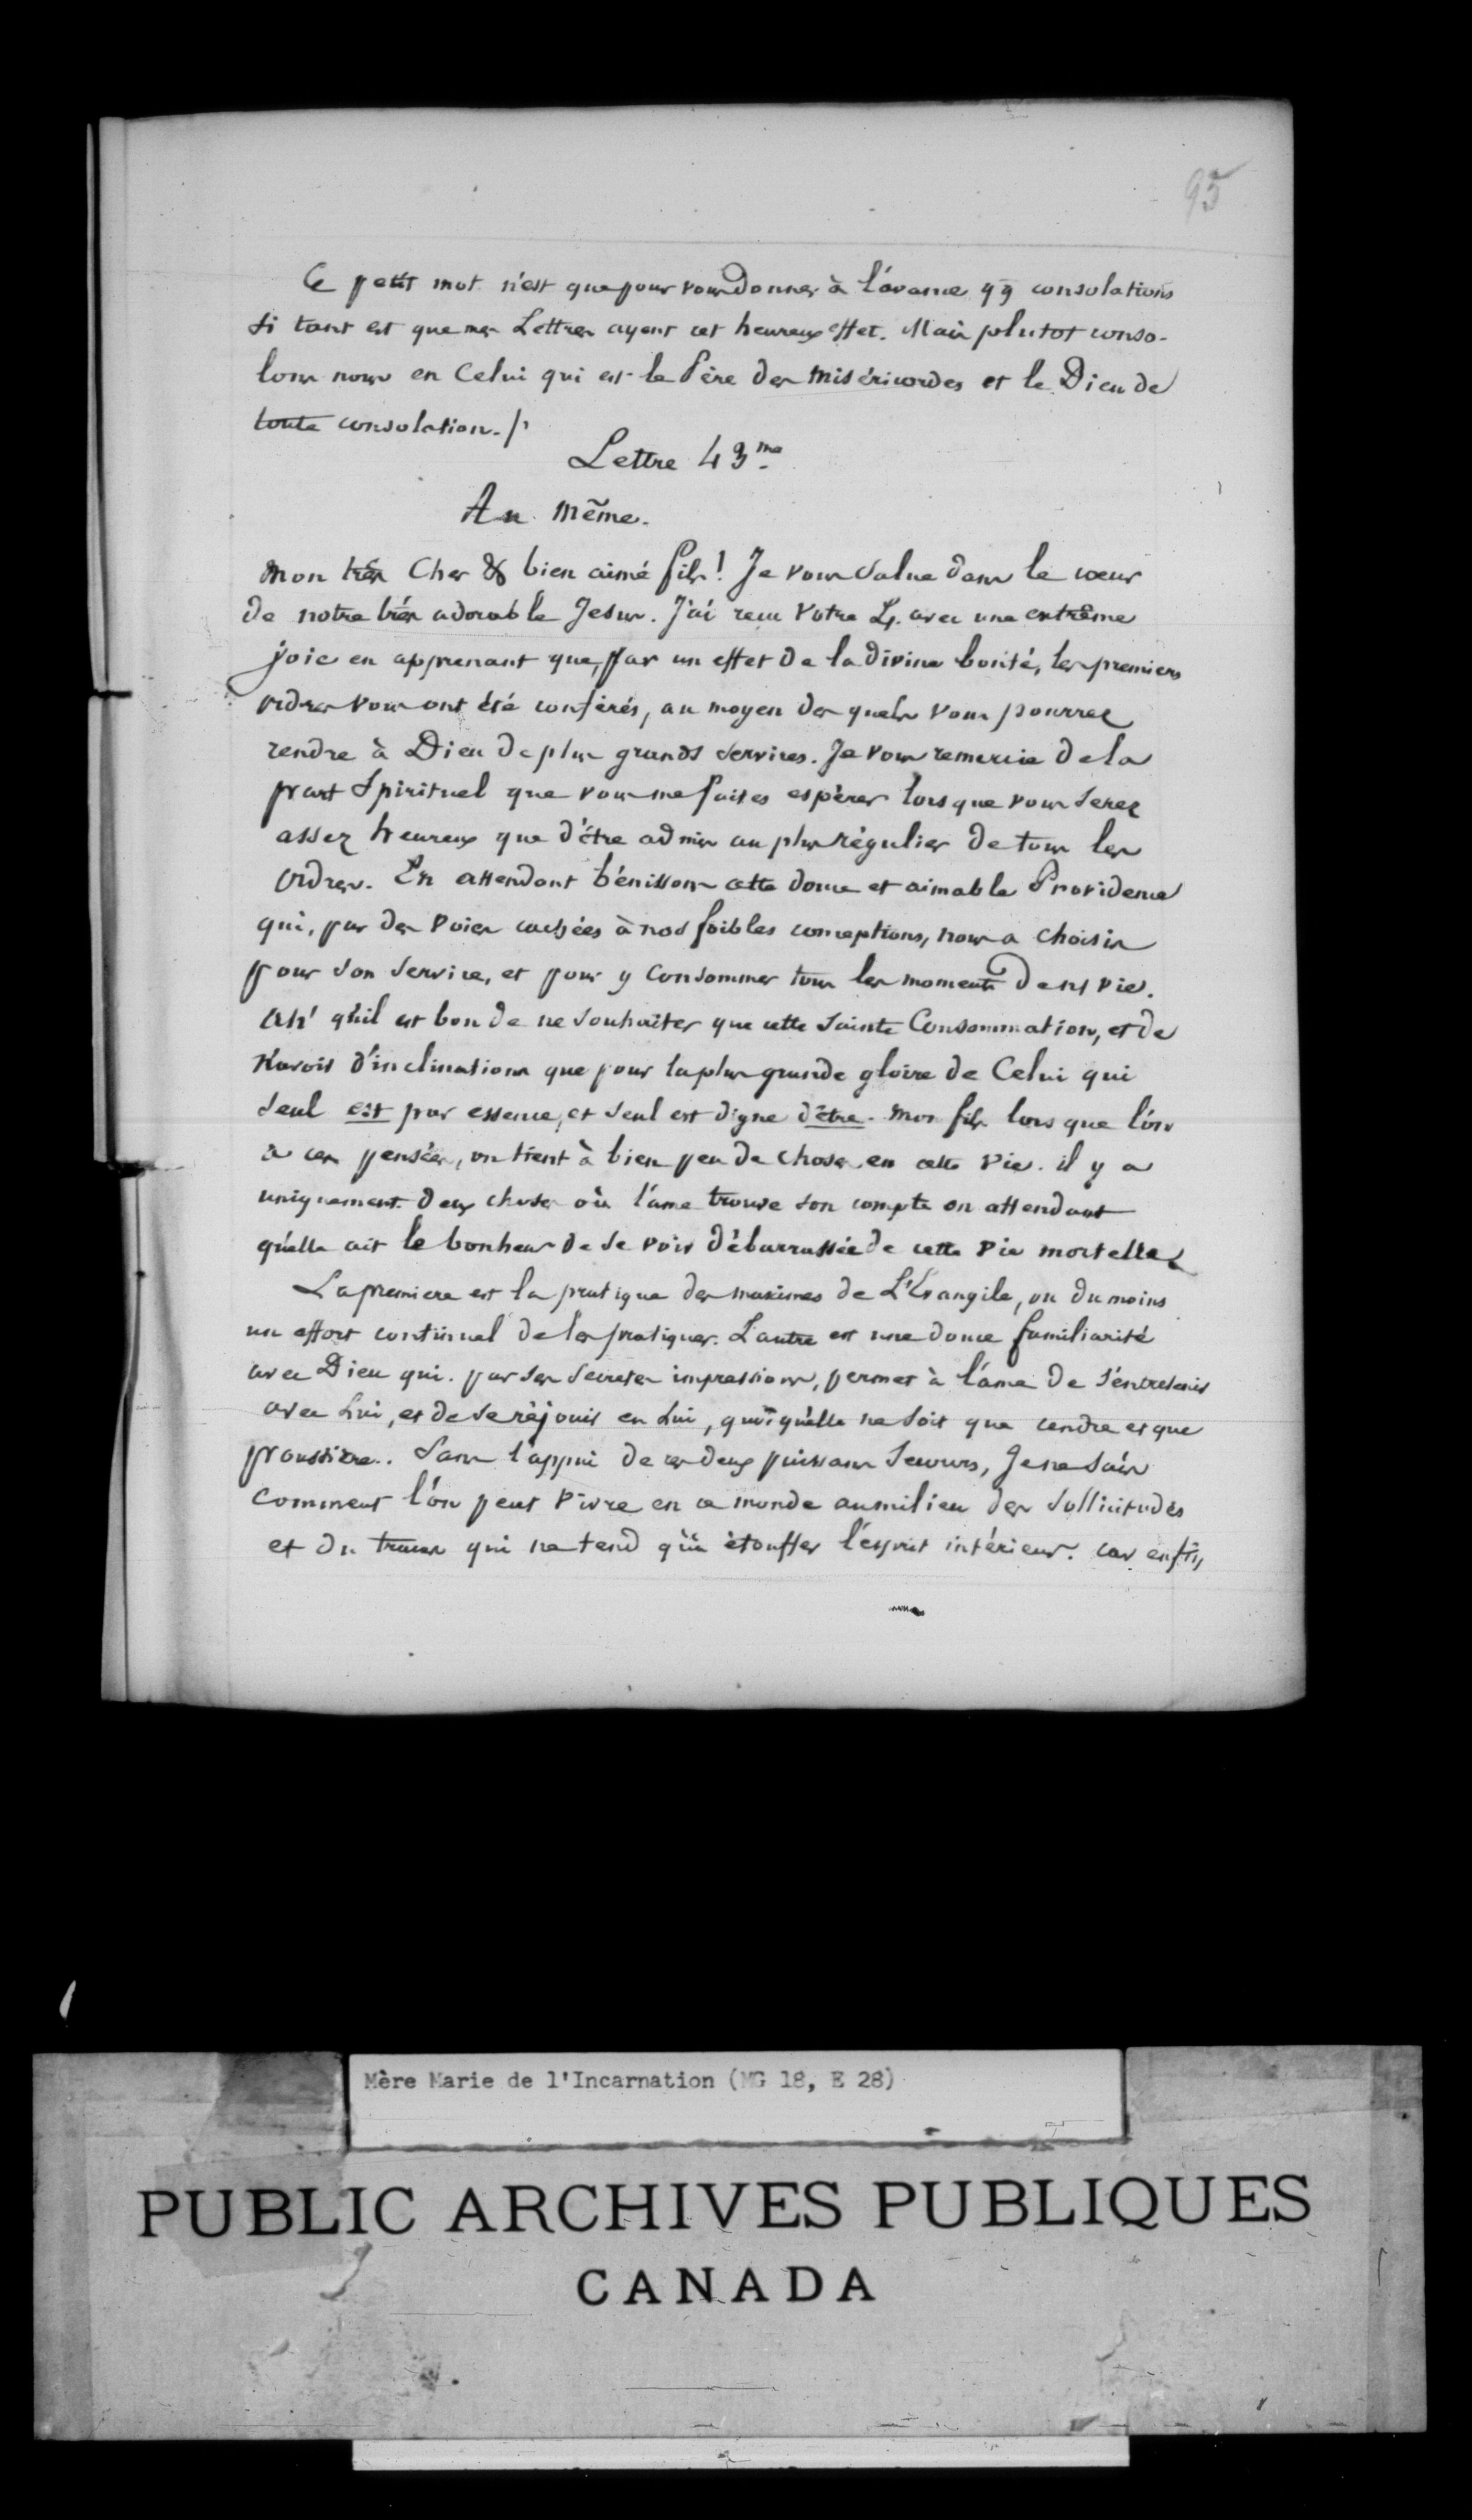 95
Ce petit mot n'est que pour vous donner à l'avance qq consolations
si tant est que mes Lettres ayent cet heureux effet. Mais plutot conso-
lons nous en Celui qui est le Père des Miséricordes et le Dieu de
toute consolation./.
Lettre 43.me
Au même.
Mon très Cher & bien aimé fils! Je vous salue dans le cœur
de notre très adorable Jesus. J'ai recu votre L. avec une extrême
joie en apprenant que, par un effet de la divine bonté, les premiers
ordres vous ont été conférés, au moyen des quels vous pourrez
rendre à Dieu de plus grands services. Je vous remercie de la
part Spirituel que vous me faites espérer lors que vous serez
assez heureux que d'être admis au plus régulier de tous les
ordres. En attendant bénissons cette douce et aimable Providence
qui, par des voies cachées à nos foibles conceptions, nous a choisis
pour son service, et pour y consommer tous les moments de ns vie.
Ah! qu'il est bon de ne souhaiter que cette sainte Consommation, et de
n'avoir d'inclinations que pour la plus grande gloire de Celui qui
seul est par essence, et seul est digne d'être. Mon fils lors que l'on
a ces pensées, on tient à bien peu de choses en cette vie. il y a
uniquement deux choses où l'ame trouve son compte en attendant
qu'elle ait le bonheur de se voir débarrassée de cette vie mortelle.
La premiere est la pratique des maximes de L'Evangile, ou du moins
un effort continuel de les pratiquer. L'autre est une douce familiarité
avec Dieu qui. par ses secretes impressions, permet à l'ame de s'entretenir
avec Lui, et de se réjouir en Lui, quoiqu'elle ne soit que cendre et que
poussiere. Sans l'appui de ces deux puissans secours, Je ne sais
comment l'on peut vivre en ce monde au milieu des sollicitudes
et du tracas qui ne tend qu'à étouffer l'esprit intérieur. car enfin
Mère Marie de l'Incarnation (MG 18, E 28)
PUBLIC ARCHIVES PUBLIQUES
CANADA